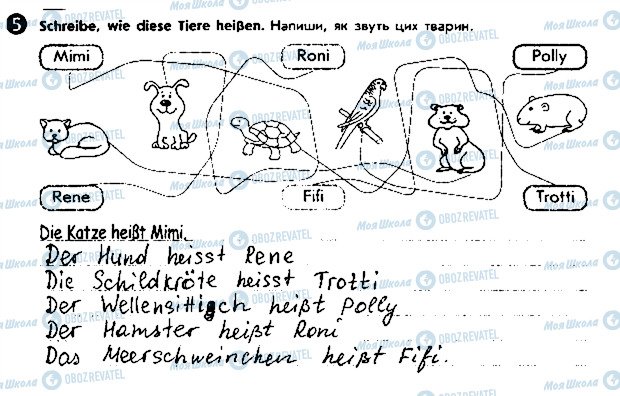 5 Schreibe, wie diese Tiere heißen. Напиши, як звуть цих тварин.
Mimi Roni Polly
Rene Fifi Trotti
Die Katze heißt Mimi.
Der Hund heisst Rene
Die Schildkröte heisst Trotti
Der Wellensittigch heißt Polly
Der Hamster heißt Roni
Das Meerschweinchen heißt Fifi.
Моя Школа OBOZREVATEL